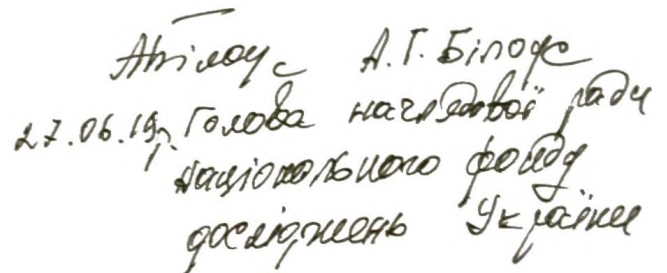 АБілоус А.Г. Білоус
27.06.19р. Голова наглядової ради
Національного фонду
досліджень України